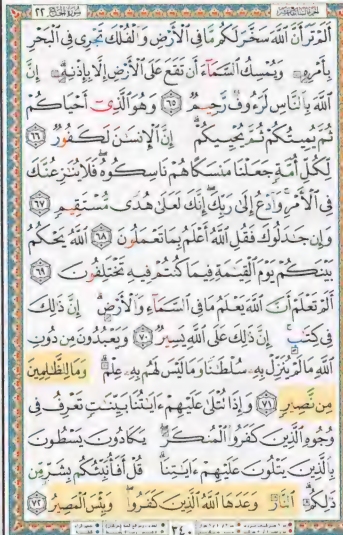 أَلَمْ تَرَ أَنَّ ٱللَّهَ سَخَّرَ لَكُم مَّا فِى ٱلْأَرْضِ وَٱلْفُلْكَ تَجْرِى فِى ٱلْبَحْرِ
بِأَمْرِهِۦ وَيُمْسِكُ ٱلسَّمَآءَ أَن تَقَعَ عَلَى ٱلْأَرْضِ إِلَّا بِإِذْنِهِۦٓ إِنَّ
ٱللَّهَ بِٱلنَّاسِ لَرَءُوفٌ رَّحِيمٌ ٦٥ وَهُوَ ٱلَّذِىٓ أَحْيَاكُمْ
ثُمَّ يُمِيتُكُمْ ثُمَّ يُحْيِيكُمْ إِنَّ ٱلْإِنسَـٰنَ لَكَفُورٌ ٦٦
لِّكُلِّ أُمَّةٍ جَعَلْنَا مَنسَكًا هُمْ نَاسِكُوهُ فَلَا يُنَـٰزِعُنَّكَ
فِى ٱلْأَمْرِ وَٱدْعُ إِلَىٰ رَبِّكَ إِنَّكَ لَعَلَىٰ هُدًى مُّسْتَقِيمٍ ٦٧
وَإِن جَـٰدَلُوكَ فَقُلِ ٱللَّهُ أَعْلَمُ بِمَا تَعْمَلُونَ ٦٨ ٱللَّهُ يَحْكُمُ
بَيْنَكُمْ يَوْمَ ٱلْقِيَـٰمَةِ فِيمَا كُنتُمْ فِيهِ تَخْتَلِفُونَ ٦٩
أَلَمْ تَعْلَمْ أَنَّ ٱللَّهَ يَعْلَمُ مَا فِى ٱلسَّمَآءِ وَٱلْأَرْضِ إِنَّ ذَٰلِكَ
فِى كِتَـٰبٍ إِنَّ ذَٰلِكَ عَلَى ٱللَّهِ يَسِيرٌ ٧٠ وَيَعْبُدُونَ مِن دُونِ
ٱللَّهِ مَا لَمْ يُنَزِّلْ بِهِۦ سُلْطَـٰنًا وَمَا لَيْسَ لَهُم بِهِۦ عِلْمٌ وَمَا لِلظَّـٰلِمِينَ
مِن نَّصِيرٍ ٧١ وَإِذَا تُتْلَىٰ عَلَيْهِمْ ءَايَـٰتُنَا بَيِّنَـٰتٍ تَعْرِفُ فِى
وُجُوهِ ٱلَّذِينَ كَفَرُوا۟ ٱلْمُنكَرَ يَكَادُونَ يَسْطُونَ
بِٱلَّذِينَ يَتْلُونَ عَلَيْهِمْ ءَايَـٰتِنَا قُلْ أَفَأُنَبِّئُكُم بِشَرٍّ مِّن
ذَٰلِكُمُ ٱلنَّارُ وَعَدَهَا ٱللَّهُ ٱلَّذِينَ كَفَرُوا۟ وَبِئْسَ ٱلْمَصِيرُ ٧٢
٣٤٠